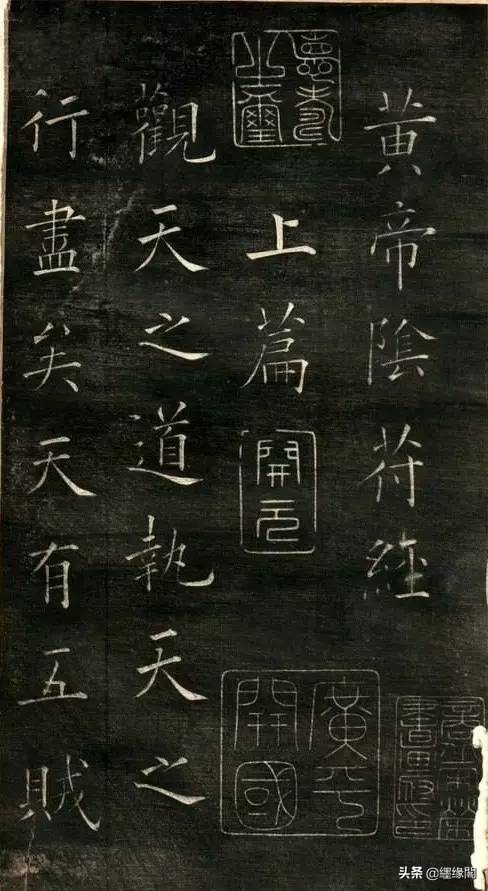 黄帝陰符經
上篇
開元
廣平
開國
觀天之道執天之
行盡矣天有五賊
头条 @纒缘閣